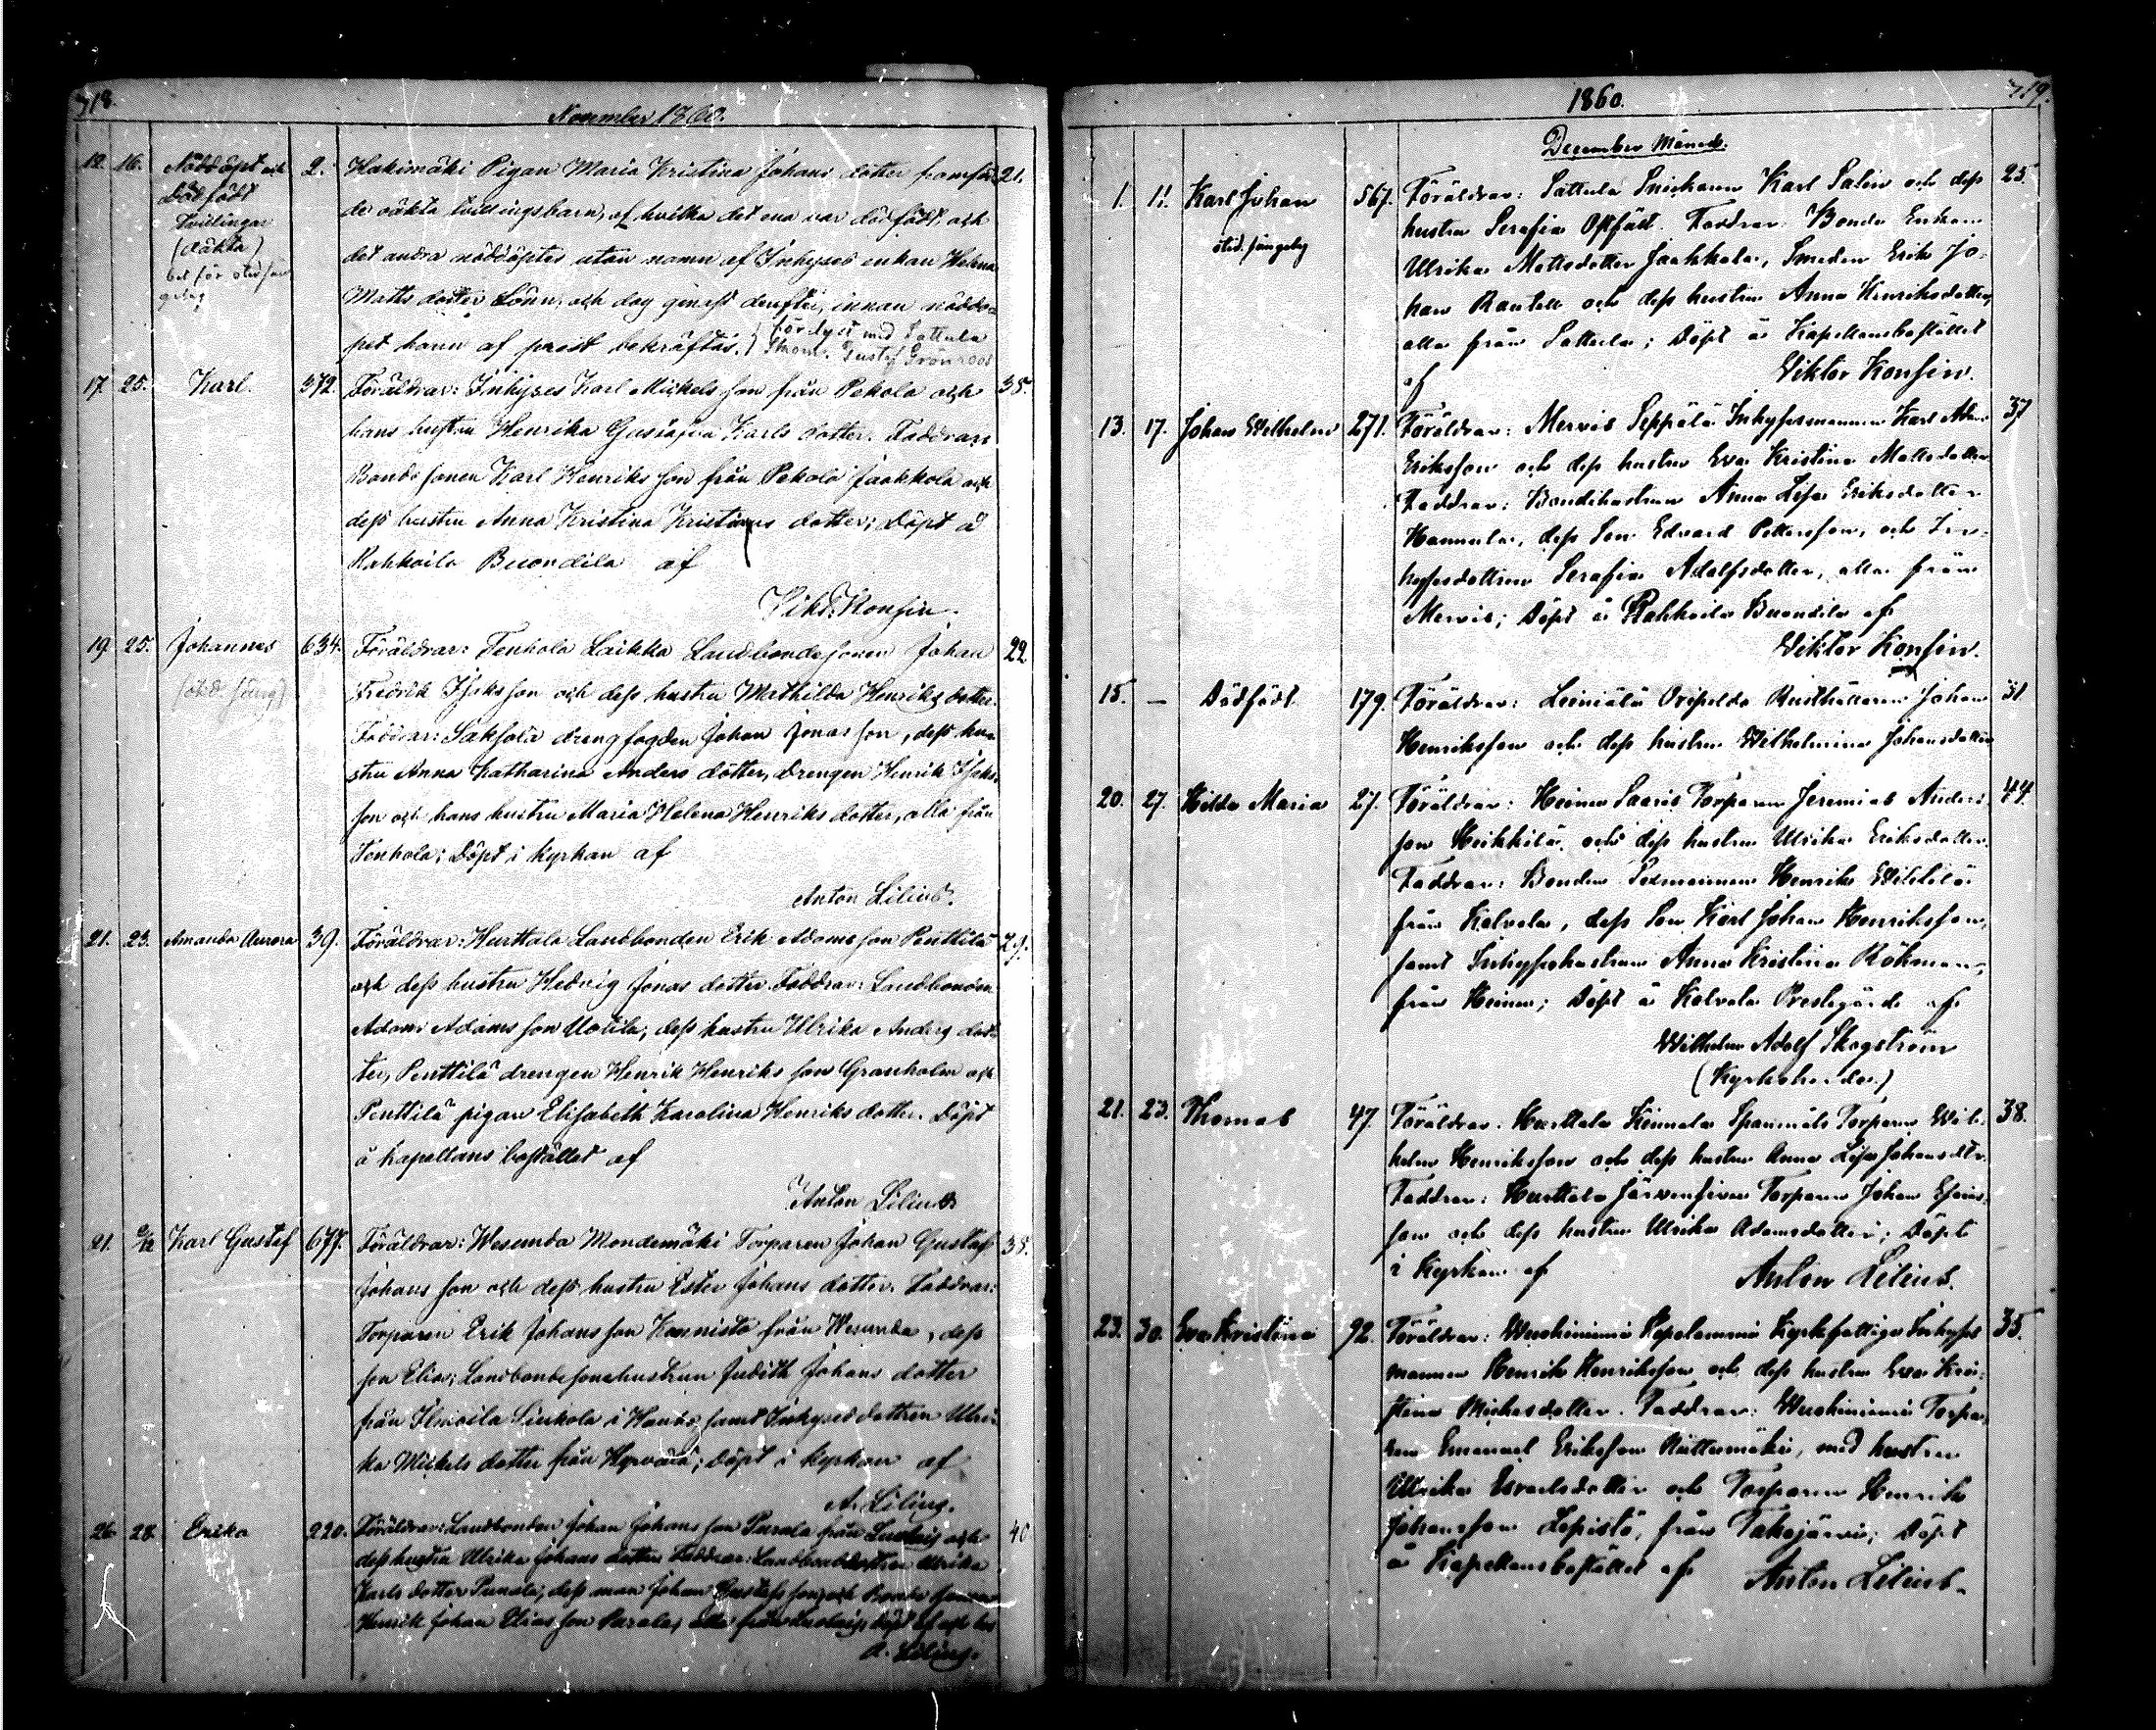 318.
November 1860.
12. 16. Nöddöpt och 2. Hakimäki Pigan Maria Kristina Johans dotter framföd 21.
dödfödt
tvillingar
(oäkta)
de oäkta tvillingsbarn, af hvilka det ena var dödfödt och
det andra nöddöptes utan namn af Inhyses enkan Helena
Matts dotter Lönn, och dog genast derefter, innan nöddo-
pet hann af prest bekräftas.
Gustaf Grönroos
17. 25. Karl. 372. Föräldrar: Inhyses Karl Mickels son från Pekola och 38.
hans hustru Henrika Gustafva Karls dotter. Faddrar:
Bonde sonen Karl Henriks son från Pekola Jaakkola och
dess hustru Anna Kristina Kristians dotter; Döpt å
Rahkoila Buondila af
Vikt. Konsin.
19. 25. Johannes 634. Föräldrar: Tenhola Laikka Landbondesonen Johan 22
Fredrik Isaksson och dess hustru Mathilda Henriks dotter.
Faddrar: Saksala drengfogden Johan Jonas son, dess hu-
stru Anna Katharina Anders dotter, Drengen Henrik Isaks-
son och hans hustru Maria Helena Henriks dotter, alla från
Tenhola; Döpt i kyrkan af
Anton Lilius.
21. 23. Amanda Aurora 39. Föräldrar: Hurttala Landbonden Erik Adams son Penttilä 29.
och dess hustru Hedvig Jonas dotter. Faddrar: Landbonden
Adam Adams son Uotila, dess hustru Ulrika Anders dot-
ter, Penttilä drengen Henrik Henriks son Granholm och
Penttilä pigan Elisabeth Karolina Henriks dotter. Döpt
å kapellans bostället af
Anton Lilius
21. 2/12 Karl Gustaf 677. Föräldrar: Wesunda Mondemäki Torparen Johan Gustaf 38.
Johans son och dess hustru Ester Johans dotter. Faddrar:
Torparen Erik Johans son Kannisto från Wesunda, dess
son Elias; Landbondesonehustrun Judith Johans dotter
från Ilmoila Sinkola i Hauho samt Inhyses dottren Ulri-
ka Mickels dotter från Hyrvälä; Döpt i kyrkan af
A. Lilius.
26. 28. Erika 220. Föräldrar: Landbonden Johan Johans son Parala från och 40
dess hustru Ulrika Johans dotter. Faddrar: Landbondehustrun Ulrika
Karls dotter dess man Johan Gustafs son, och Bonde sonen
Henrik Johan Elias son Parala, alla från
A. Lilius.
319.
1860.
December Månad.
1. 11. Karl Johan 567. Föräldrar: Sattula Snickaren Karl Salin och dess 25.
hustru Serafia Faddrar: Bonde Enkan
Ulrika Mattsdotter Jaakkola, Smeden Erik Jo-
han Rantell och dess hustru Anna Henriksdotter,
alla från Sattula; Döpt å Kapellansbostället
af Viktor Konsin.
13. 17. Johan Wilhelm 271. Föräldrar: Mervis Seppälä Inhysesmannen Karl Adam 37
Eriksson och dess hustru Eva Kristina Mattsdotter
Faddrar: Bondehustrun Anna Lisa Eriksdotter
Hannula, dess Son Edvard Pettersson, och In-
hysesdottren Serafia Adolfsdotter, alla från
Mervis; Döpt å Rahkoila Buondila af
Viktor Konsin.
15. – Dödfödt. 179. Föräldrar: Leiniälä Orihpelto Rusthållaren Johan 31
Henriksson och dess hustru Wilhelmina Johansdotter
20. 27. Hilda Maria 27. Föräldrar: Heinu Saaris Torparen Jeremias Anders- 44.
son Heikkilä och dess hustru Ulrika Eriksdotter.
Faddrar: Bonden Henrik
från Kalvola, dess Son Karl Johan Henriksson,
samt Inhyseshustrun Anna Kristina Rökman,
från Heinu; Döpt å Kalvola Prestgård af
Wilhelm Adolf Skogström
(Kyrkoherde.)
21. 23. Thomas 47. Föräldrar: Hurttala Keinula Torparen Wil- 38.
helm Henriksson och dess hustru Anna Lisa Johansdtr.
Faddrar: Hurttala Torparen Johan
son och dess hustru Ulrika Adamsdotter; Döpt
i Kyrkan af Anton Lilius.
23. 30. Eva Kristina 92. Föräldrar: Wuohiniemi Kyrkofattige Inhyses 35.
mannen Henrik Henriksson och dess hustru Eva Kri-
stina Mickelsdotter. Faddrar: Wuohiniemi Torpa-
ren Emanuel Eriksson med hustru
Ulrika och Torparen Henrik
Johansson Lepistö, från Takajärvi; Döpt
å Kapellansbostället af Anton Lilius.